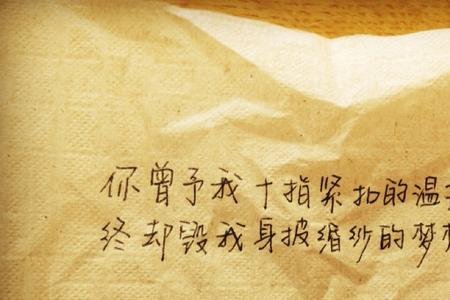 你曾予我十指紧扣的温
终却毁我身披婚纱的梦